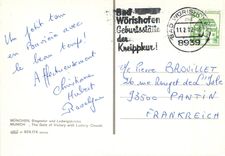 Un petit tour
en Bavière avec
le beau temps!
Affectueusement
Christiane
Hubert
Roselyne
MÜNCHEN, Siegestor und Ludwigskirche
MUNICH - The Gate of Victory with Ludwig-Church
Bad
Wörishofen
Geburtsstätte
der
Kneippkur!
BAD WÖRISHOFEN
8939
Mr Pierre BROUILLET
26 rue Rouget de l'Isle
93500 PANTIN
FRANKREICH